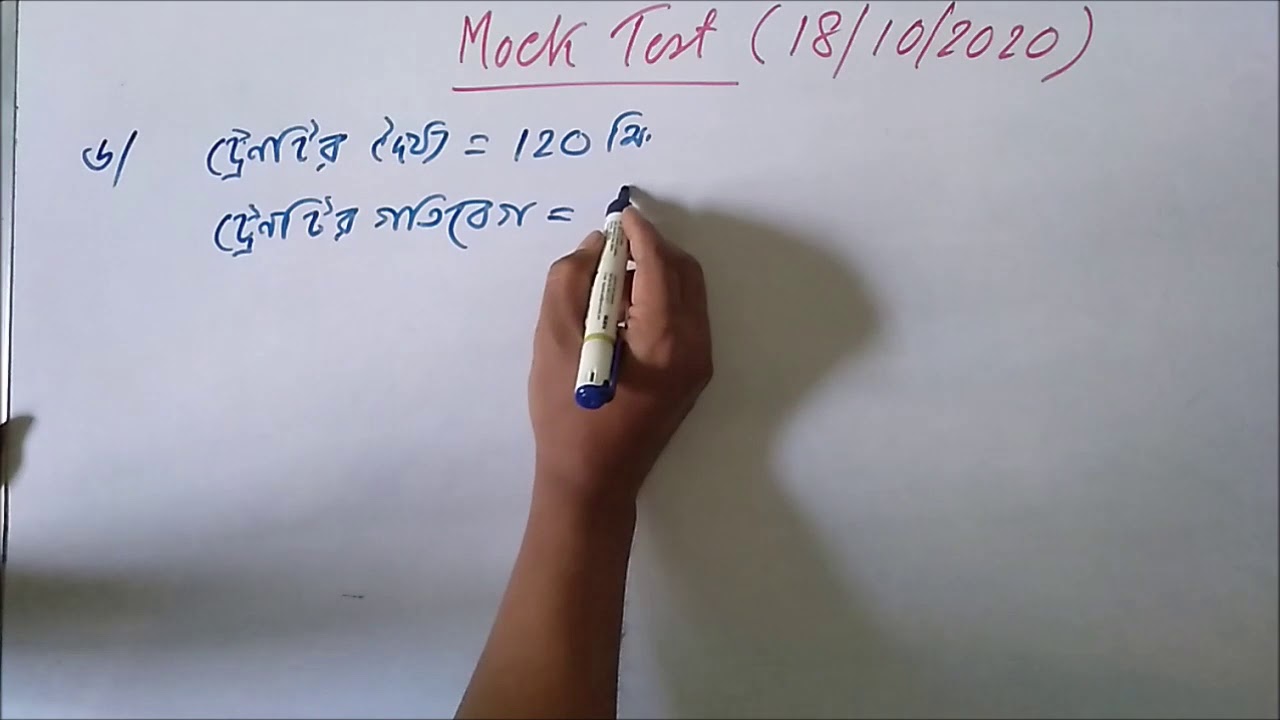 Mock Test (18/10/2020)
৬/ ট্রেনটির দৈর্ঘ্য = 120 মি.
ট্রেনটির গতিবেগ =